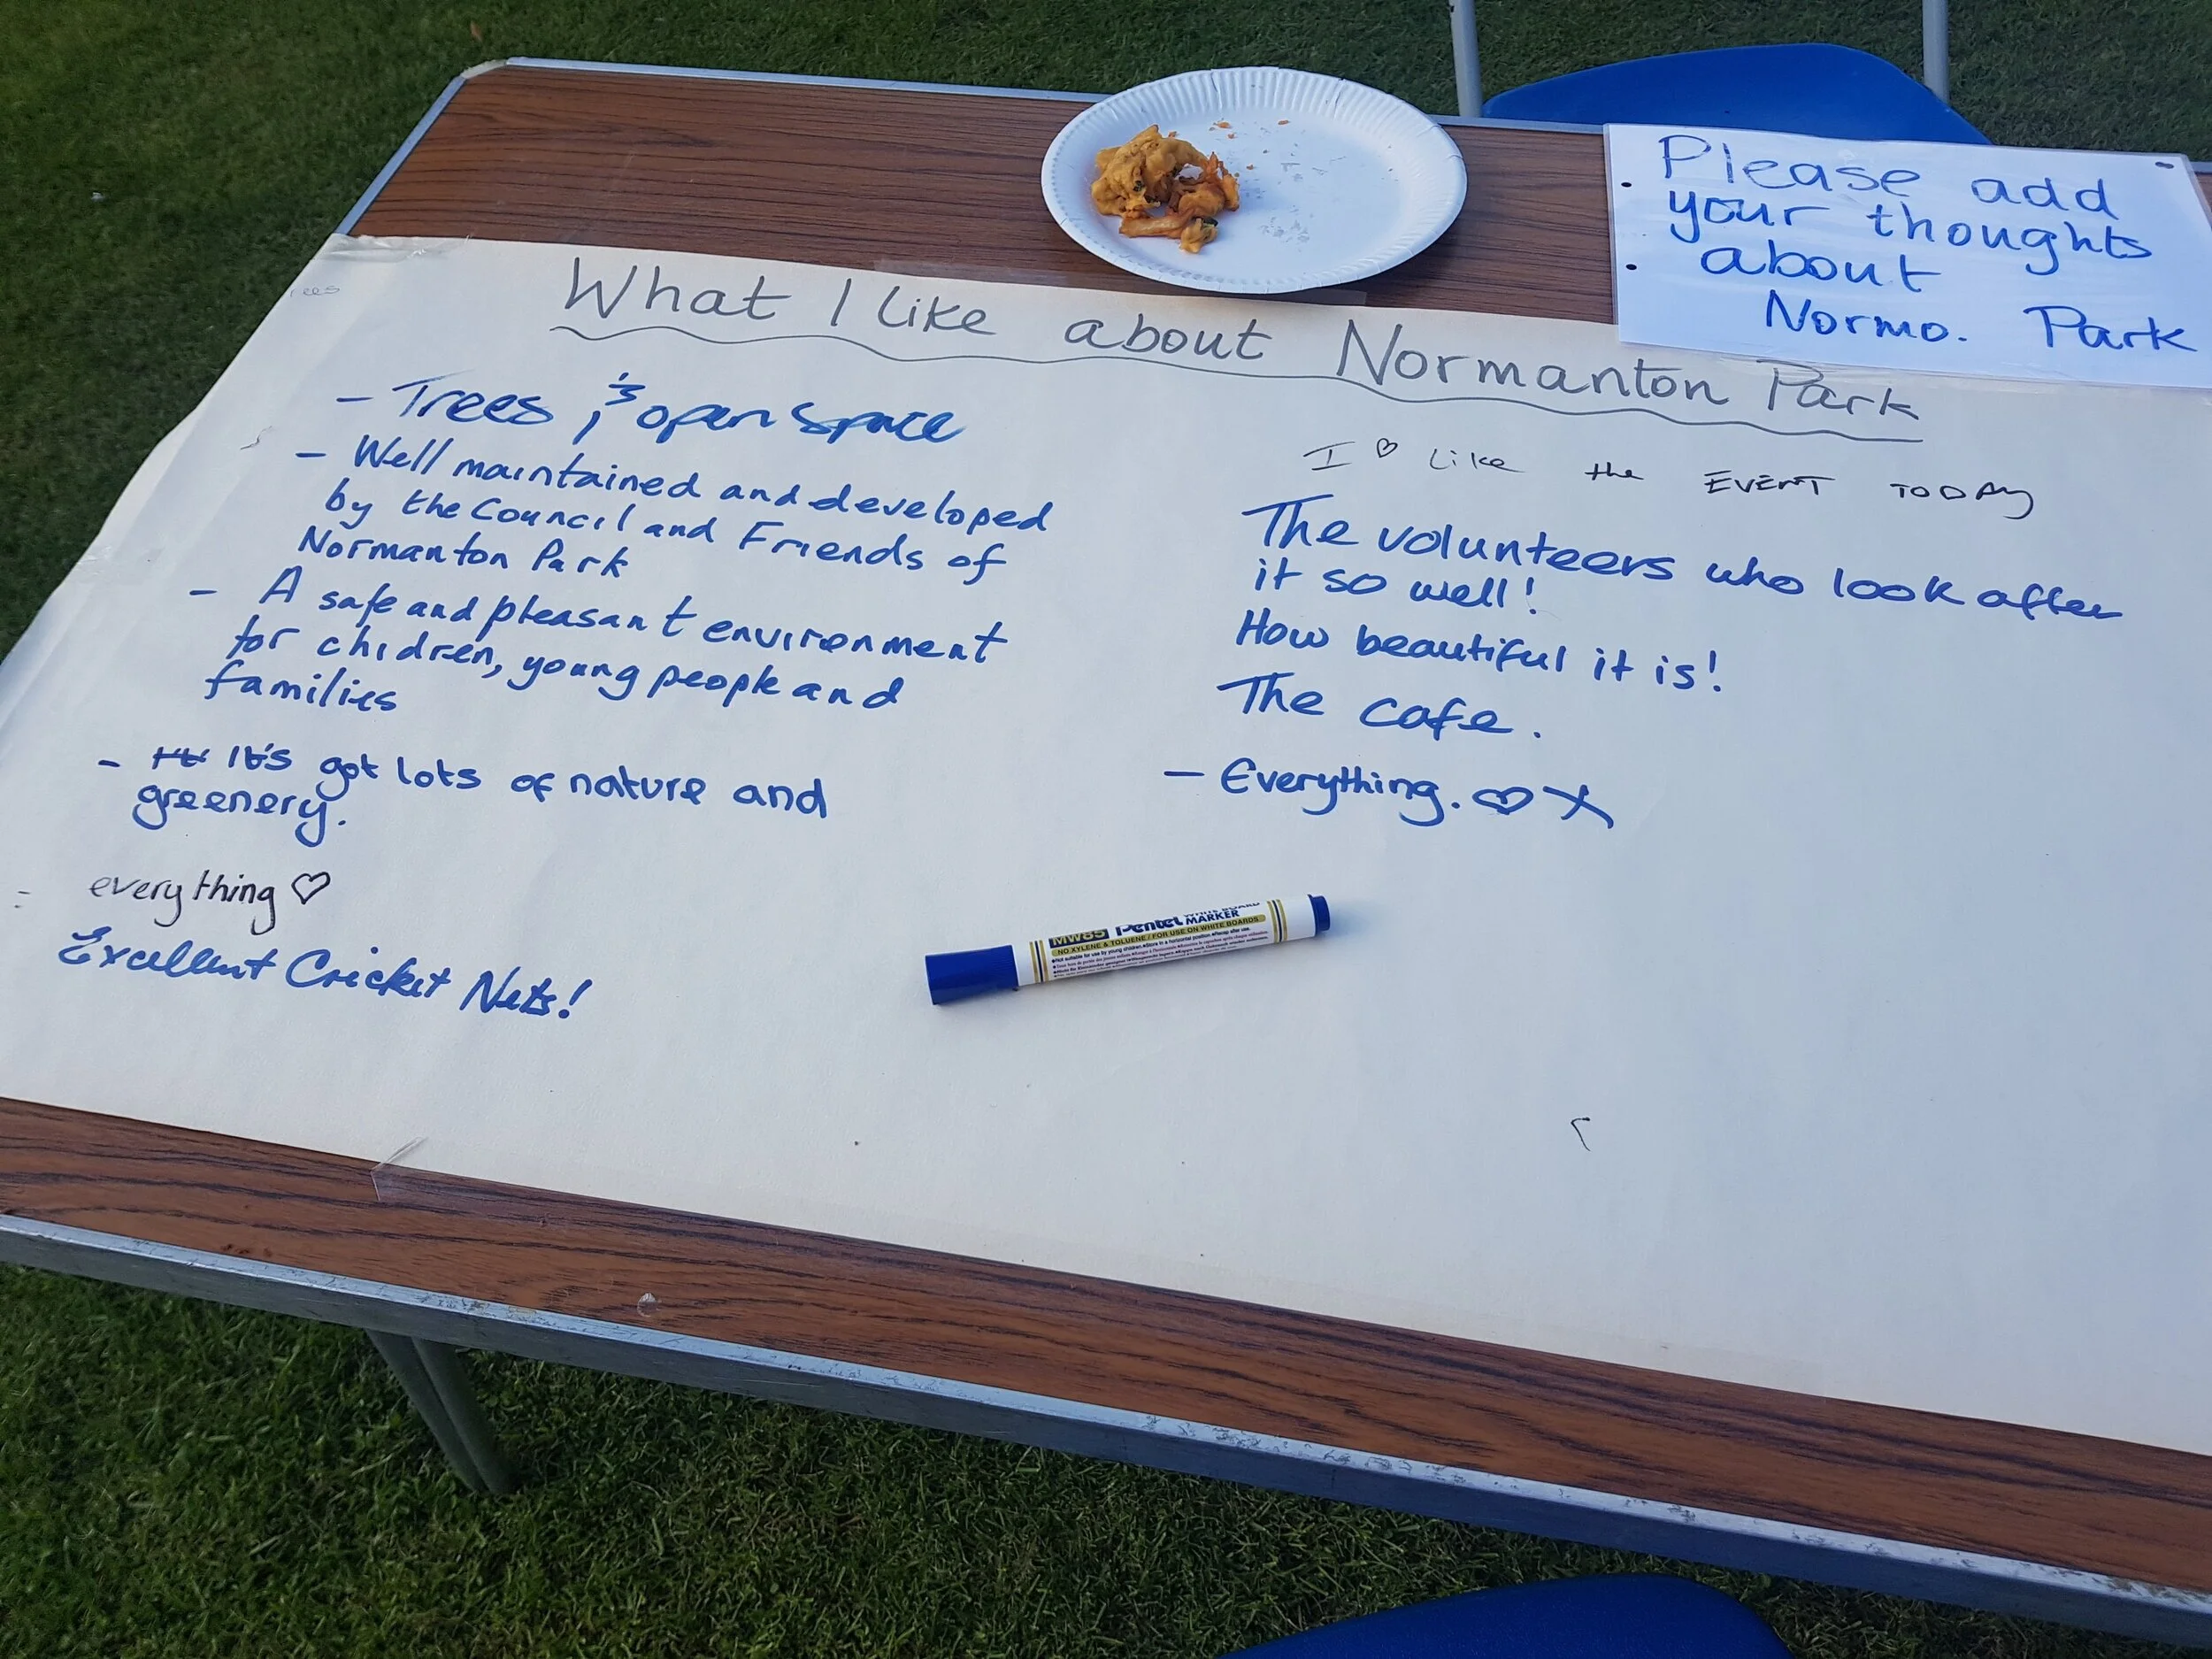 Please add
your thoughts
about
Normo. Park
What I like about Normanton Park
- Trees, & open space
- Well maintained and developed
by the Council and Friends of
Normanton Park
- A safe and pleasant environment
for chidren, young people and
families
- It's got lots of nature and
greenery.
everything ♡
Excellent Cricket Nets!
I ♡ Like the EVENT TODAY
The volunteers who look after
it so well!
How beautiful it is!
The cafe.
- Everything. ♡ X
MW85 Pentel WHITE BOARD MARKER
NO XYLENE & TOLUENE / FOR USE ON WHITE BOARDS